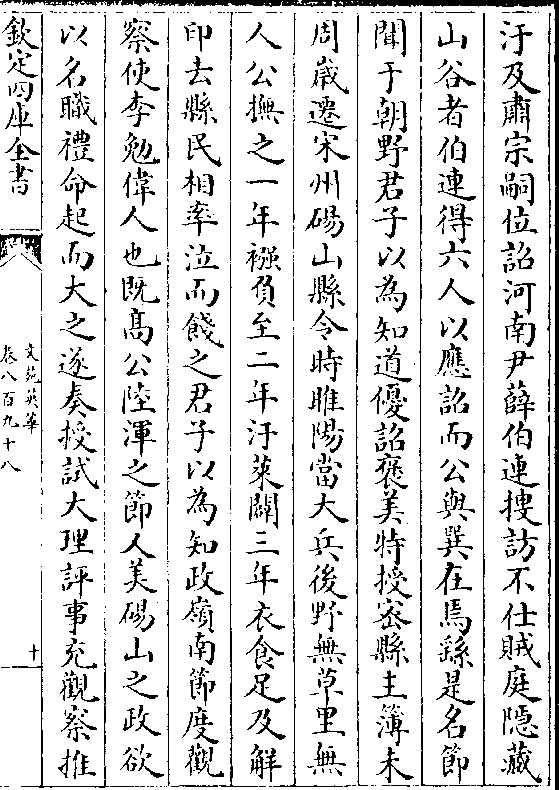 汙及肅宗嗣位詔河南尹薛伯連搜訪不仕賊庭隱藏
山谷者伯連得六人以應詔而公與巽在焉繇是名節
聞于朝野君子以為知道優詔褒美特授密縣主簿未
周歲遷宋州碭山縣令時睢陽當大兵後野無草里無
人公撫之一年襁負至二年汙萊闢三年衣食足及解
印去縣民相率泣而餞之君子以為知政嶺南節度觀
察使李勉偉人也既髙公陸渾之節人美碭山之政欲
以名職禮命起而大之遂奏授試大理評事充觀察推
欽定四庫全書
文苑英華
卷八百九十八
十